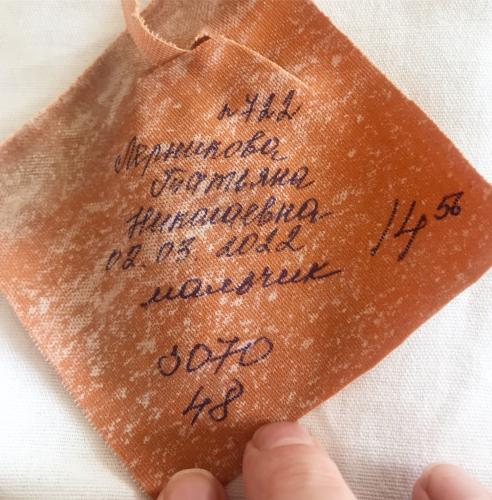 н722
Лерникова
Татьяна
Николаевна
02.03.2022
14 56
мальчик
3070
48